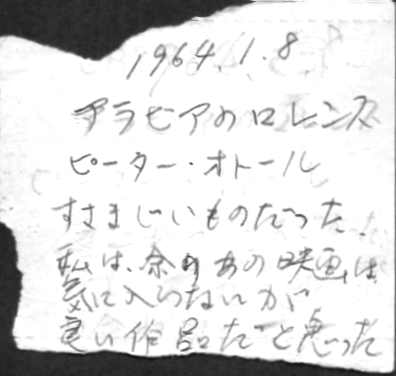 1964.1.8
アラビアのロレンス
ピーター・オトール
すさまじいものだった.
私は、余りあの映画は
気に入らないが、
良い作品だと思った